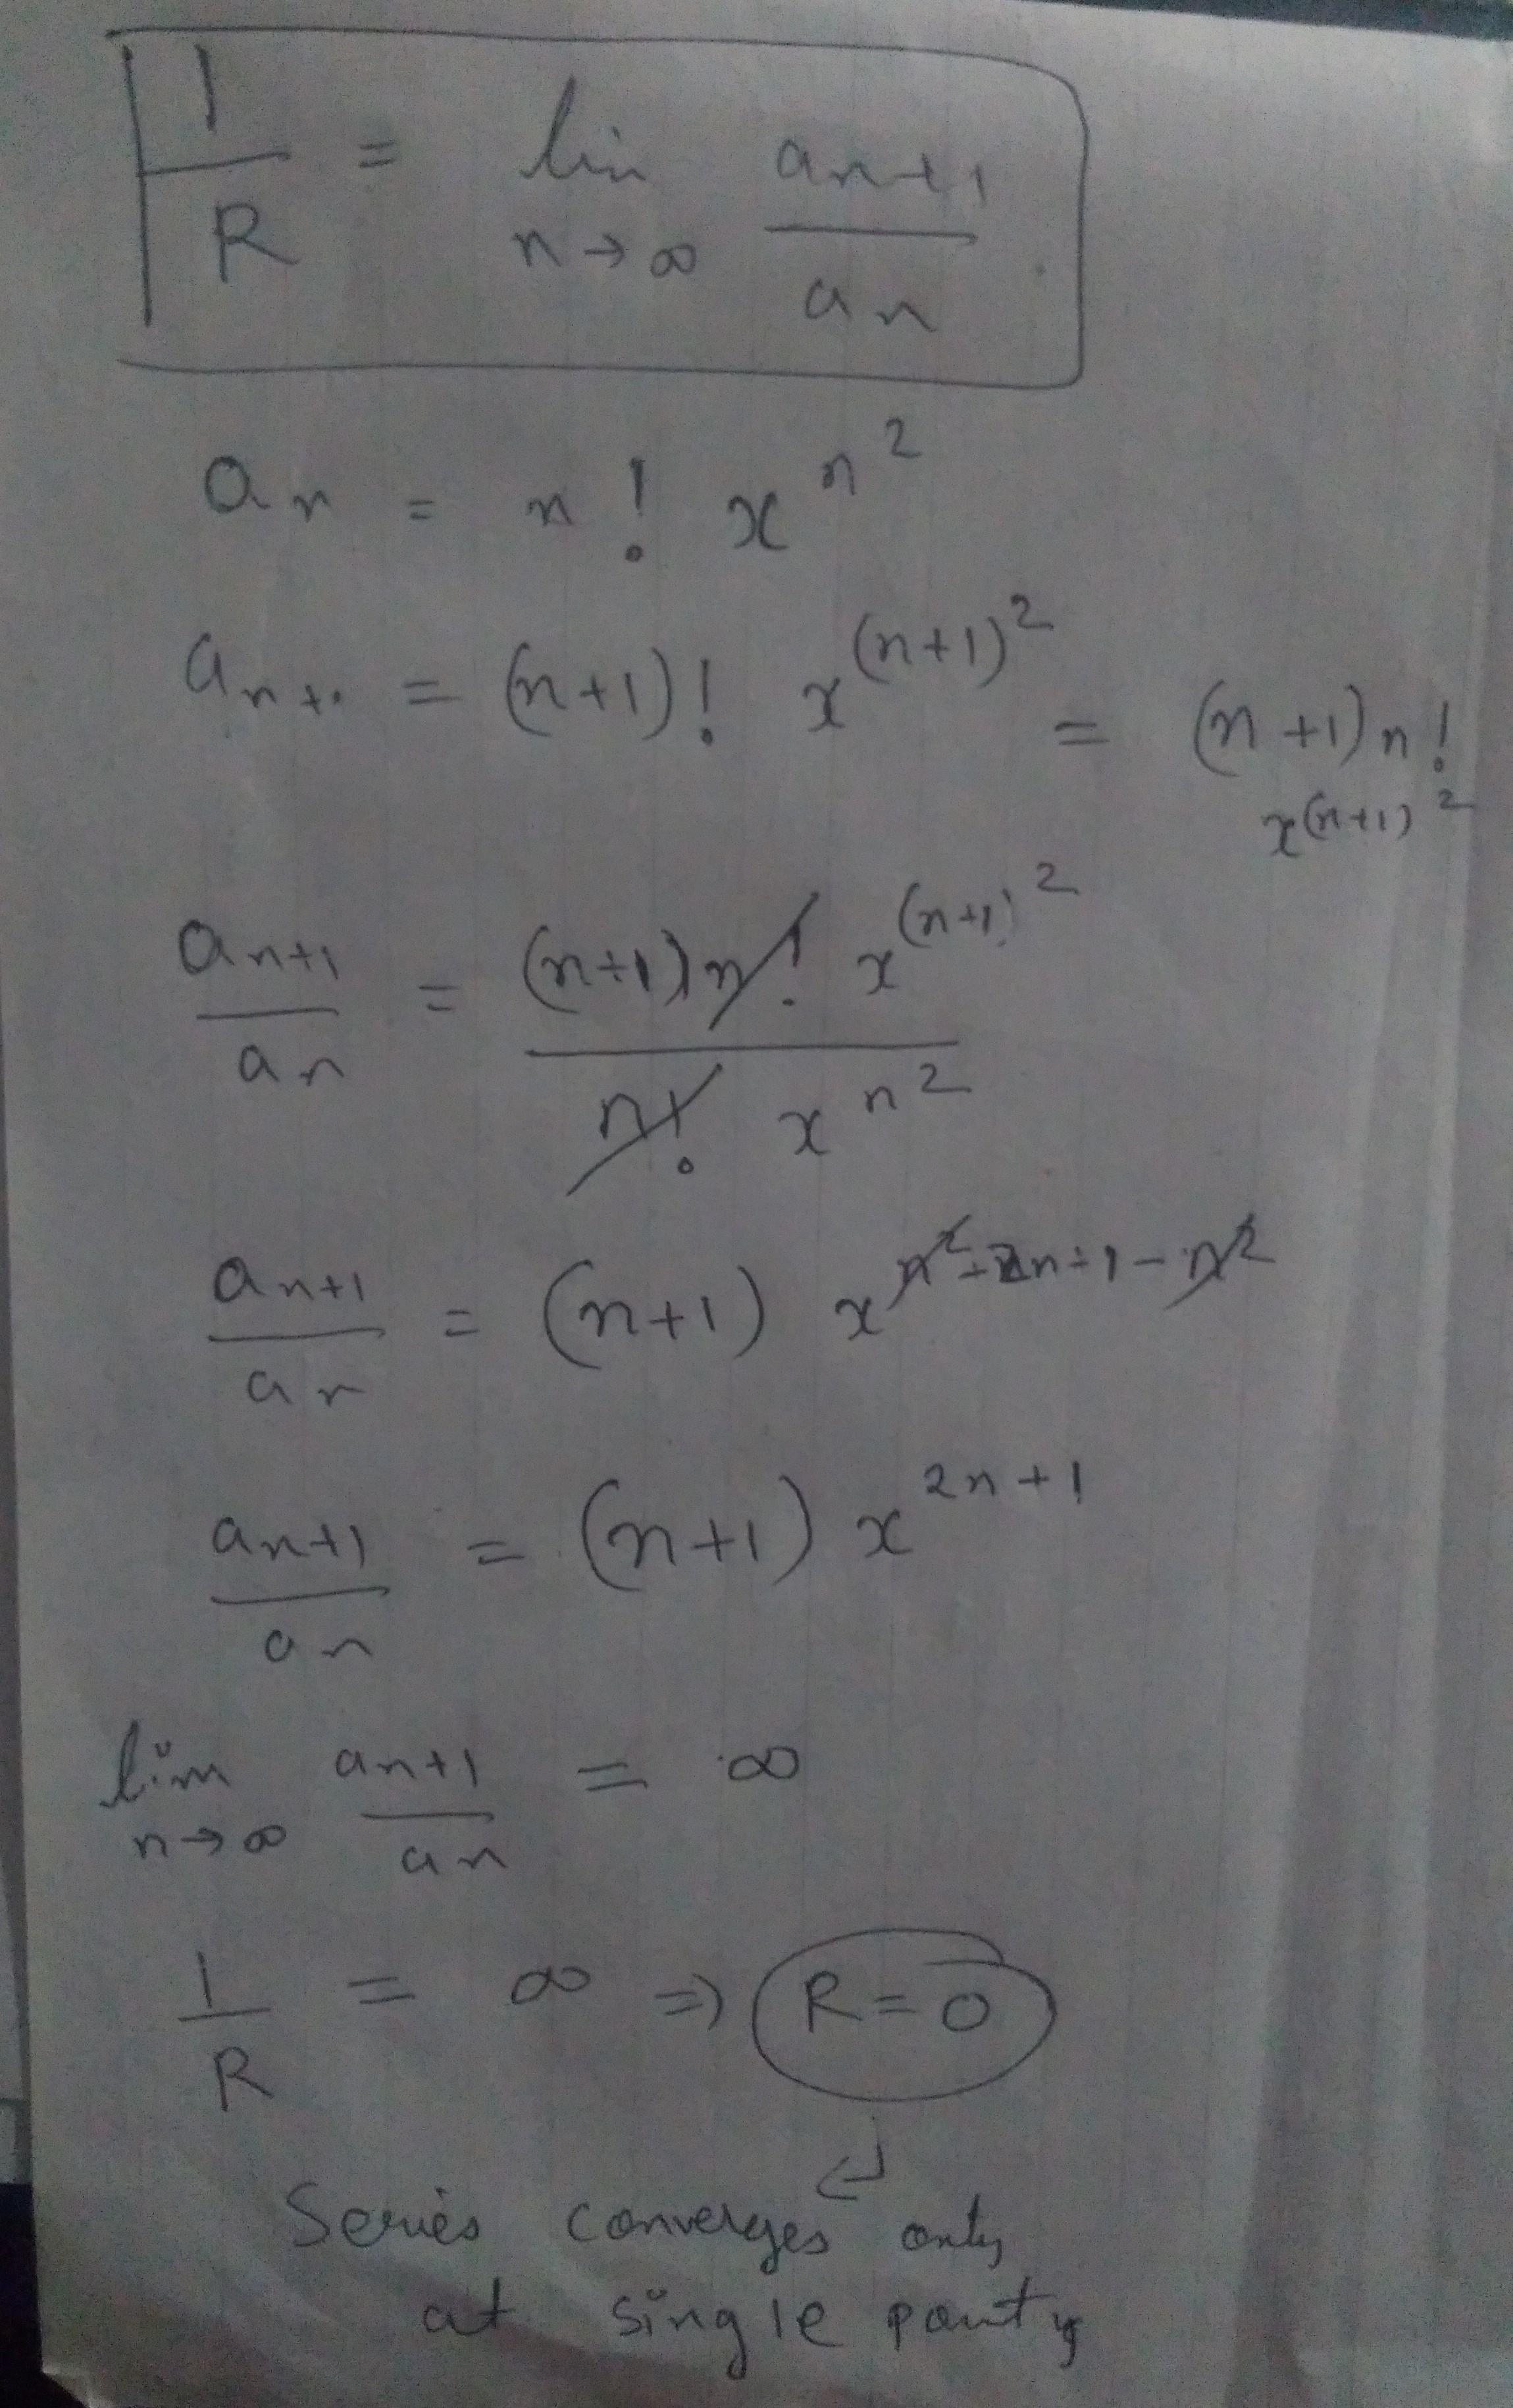 1/R = lim n→∞ an+1/an
an = n! x^n^2
an+1 = (n+1)! x^(n+1)^2 = (n+1) n! x^(n+1)^2
an+1/an = (n+1) n! x^(n+1)^2 / n! x^n^2
an+1/an = (n+1) x^n^2+2n+1-n^2
an+1/an = (n+1) x^2n+1
lim n→∞ an+1/an = ∞
1/R = ∞ ⇒ R = 0
Series converges only
at single point